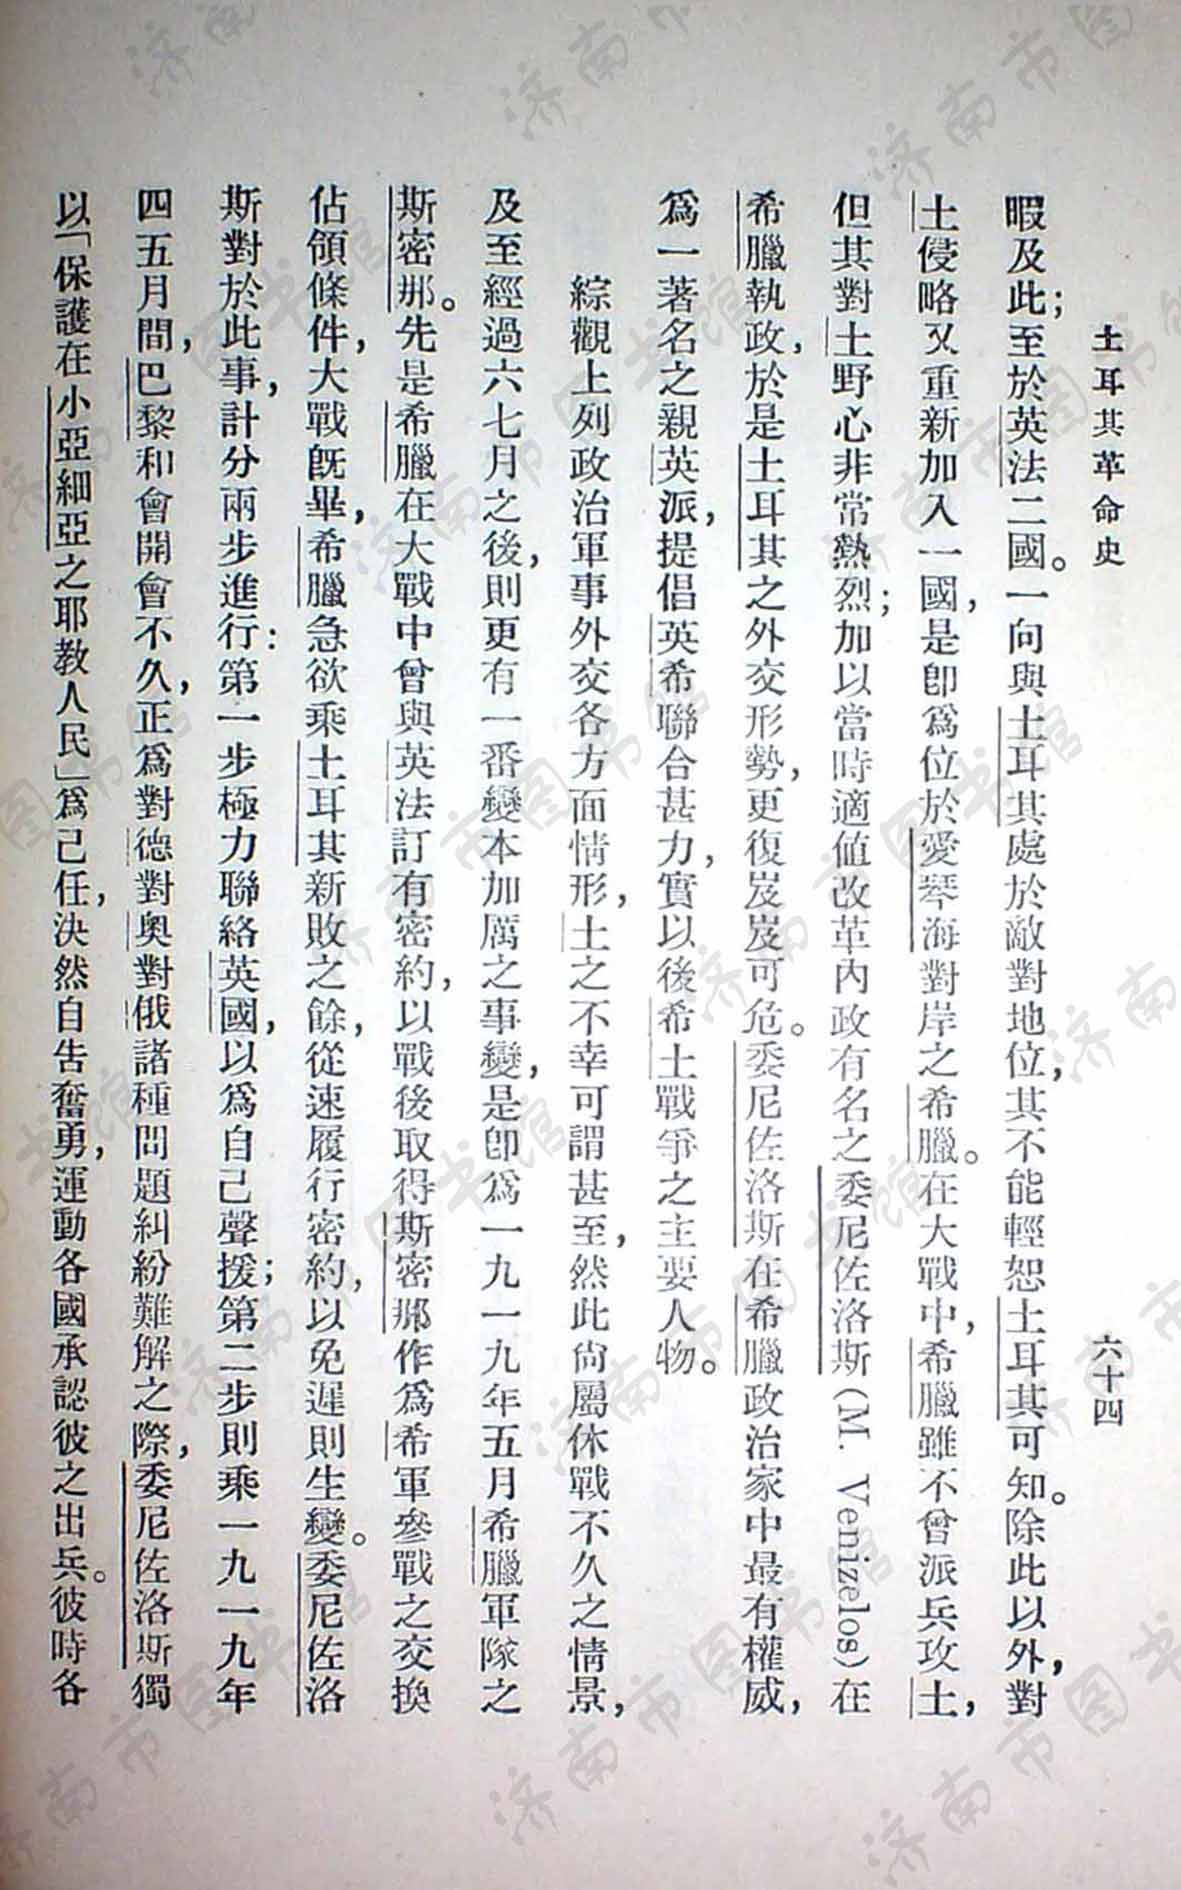 土耳其革命史
六十四
暇及此；至於英法二國。一向與土耳其處於敵對地位，其不能輕恕土耳其可知。除此以外，對
土侵略又重新加入一國，是即爲位於愛琴海對岸之希臘。在大戰中，希臘雖不曾派兵攻土，
但其對土野心非常熱烈；加以當時適值改革內政有名之委尼佐洛斯(M. Venizelos)在
希臘執政，於是土耳其之外交形勢，更復岌岌可危。委尼佐洛斯在希臘政治家中最有權威，
爲一著名之親英派，提倡英希聯合甚力，實以後希土戰爭之主要人物。
綜觀上列政治軍事外交各方面情形，土之不幸可謂甚至，然此尙屬休戰不久之情景，
及至經過六七月之後，則更有一番變本加厲之事變，是即爲一九一九年五月希臘軍隊之
斯密那。先是希臘在大戰中曾與英法訂有密約，以戰後取得斯密那作爲希軍參戰之交換
佔領條件，大戰旣畢，希臘急欲乘土耳其新敗之餘，從速履行密約，以免遲則生變。委尼佐洛
斯對於此事，計分兩步進行：第一步極力聯絡英國，以爲自己聲援；第二步則乘一九一九年
四五月間，巴黎和會開會不久，正爲對德對奧對俄諸種問題糾紛難解之際，委尼佐洛斯獨
以「保護在小亞細亞之耶教人民」爲己任，決然自告奮勇，運動各國承認彼之出兵。彼時各
济南市图书馆